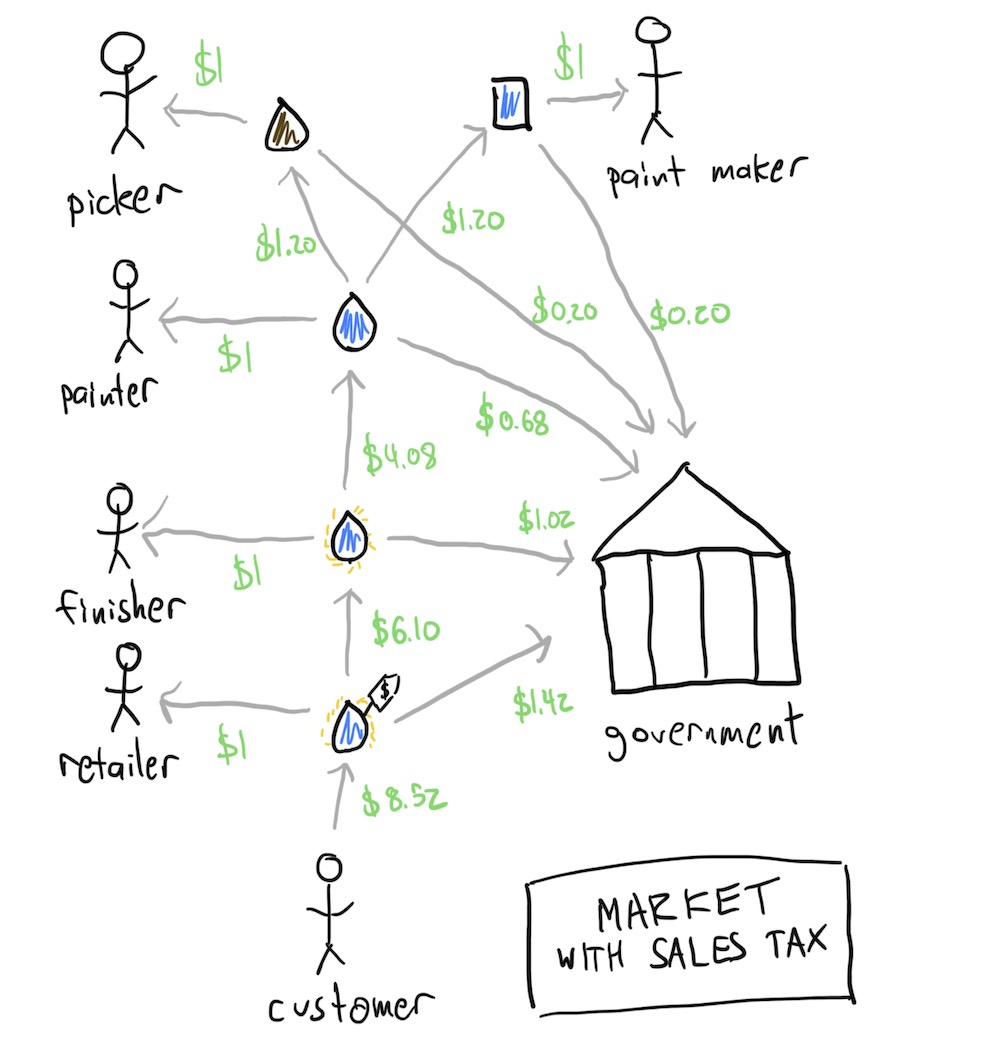 $1
$1
picker
paint maker
$1.20
$1.20
$0.20
$0.20
$1
painter
$0.68
$4.08
$1.02
$1
finisher
$6.10
$
$1.42
$1
retailer
government
$8.52
customer
MARKET
WITH SALES TAX